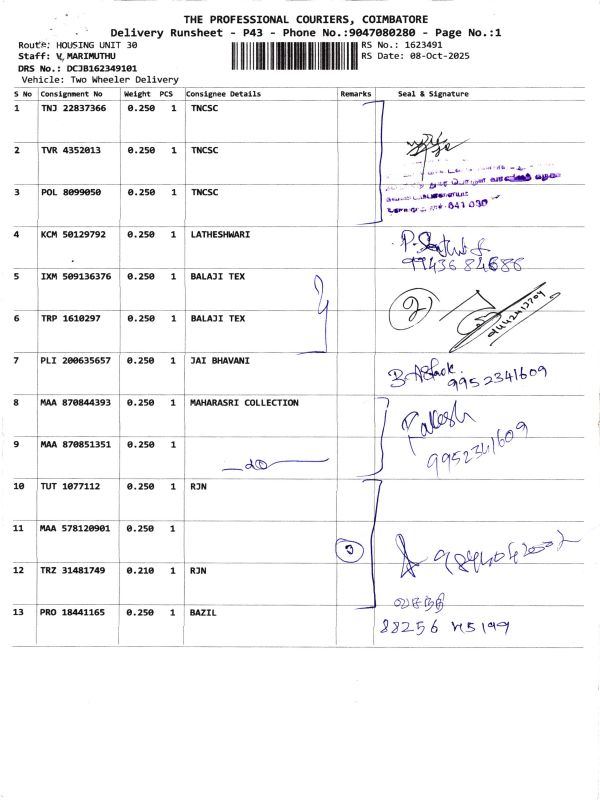 THE PROFESSIONAL COURIERS, COIMBATORE
Delivery Runsheet - P43 - Phone No.:9047080280 - Page No.:1
Route: HOUSING UNIT 30
RS No.: 1623491
Staff: V, MARIMUTHU
RS Date: 08-Oct-2025
DRS No.: DCJB162349101
Vehicle: Two Wheeler Delivery
S No Consignment No Weight PCS Consignee Details Remarks Seal & Signature
1 TNJ 22837366 0.250 1 TNCSC
2 TVR 4352013 0.250 1 TNCSC
3 POL 8099050 0.250 1 TNCSC
641 030
4 KCM 50129792 0.250 1 LATHESHWARI
99436 84686
5 IXM 509136376 0.250 1 BALAJI TEX
2
9442413704
6 TRP 1610297 0.250 1 BALAJI TEX
7 PLI 200635657 0.250 1 JAI BHAVANI
B. Ashok.
9952341609
8 MAA 870844393 0.250 1 MAHARASRI COLLECTION
Rakesh
9952341609
9 MAA 870851351 0.250 1
do
10 TUT 1077112 0.250 1 RJN
11 MAA 578120901 0.250 1
3
12 TRZ 31481749 0.210 1 RJN
வசந்தி
13 PRO 18441165 0.250 1 BAZIL
88256 45199